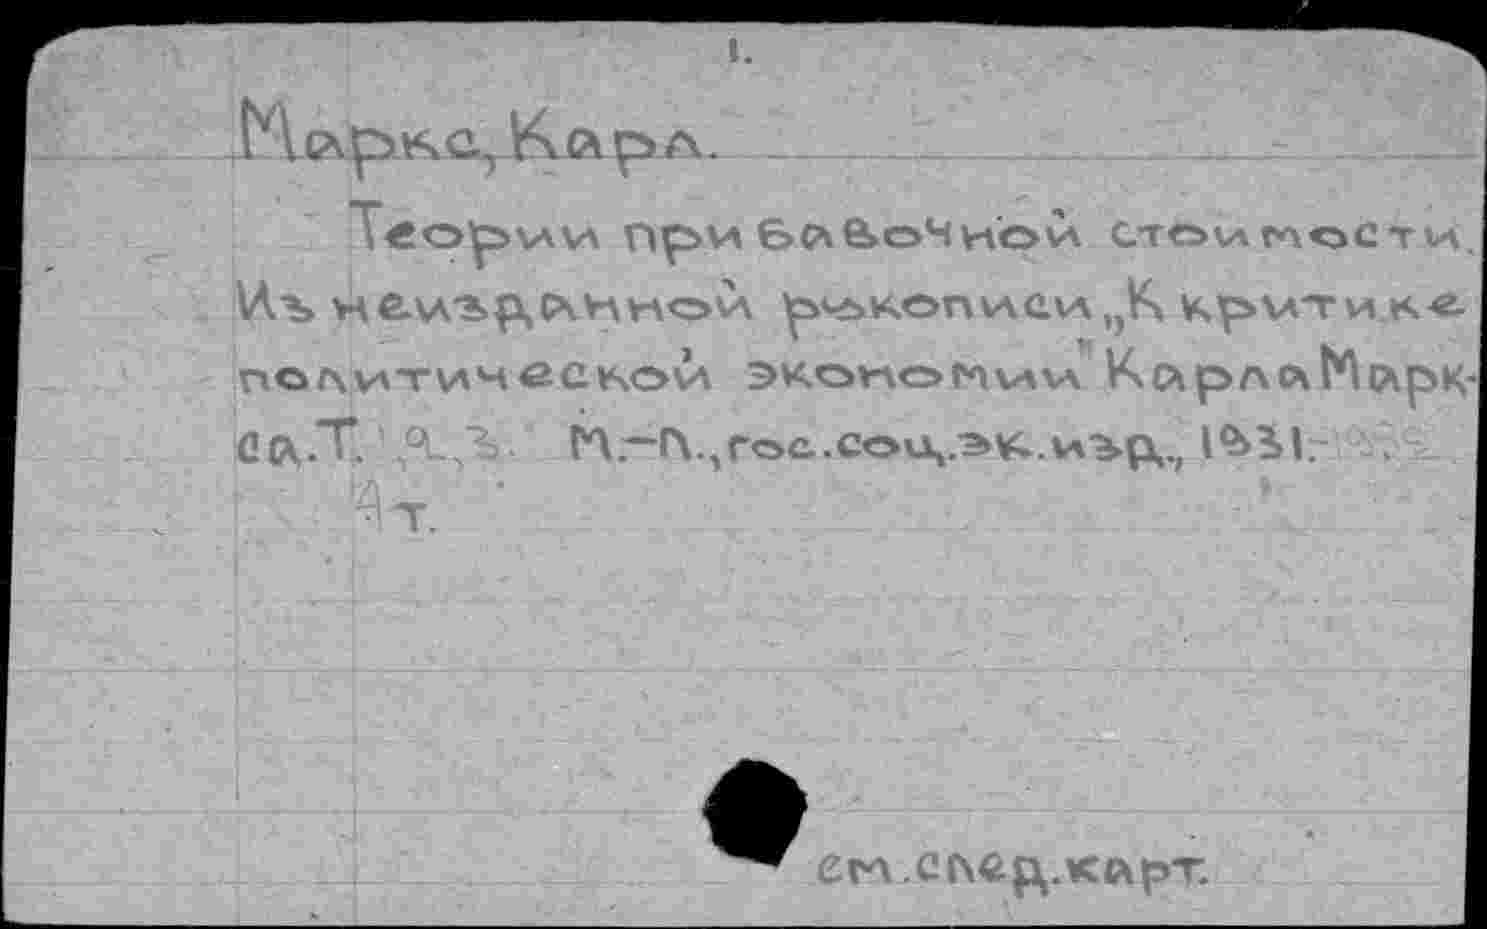 1.
Маркс, Карл.
Теории прибавочной стоимости.
Из неизданной рукописи „К критике
политической экономии" Карла Марк-
са. Т. М.–Л., гос. соц. эк. изд., 1931.
т.
см. след. карт.